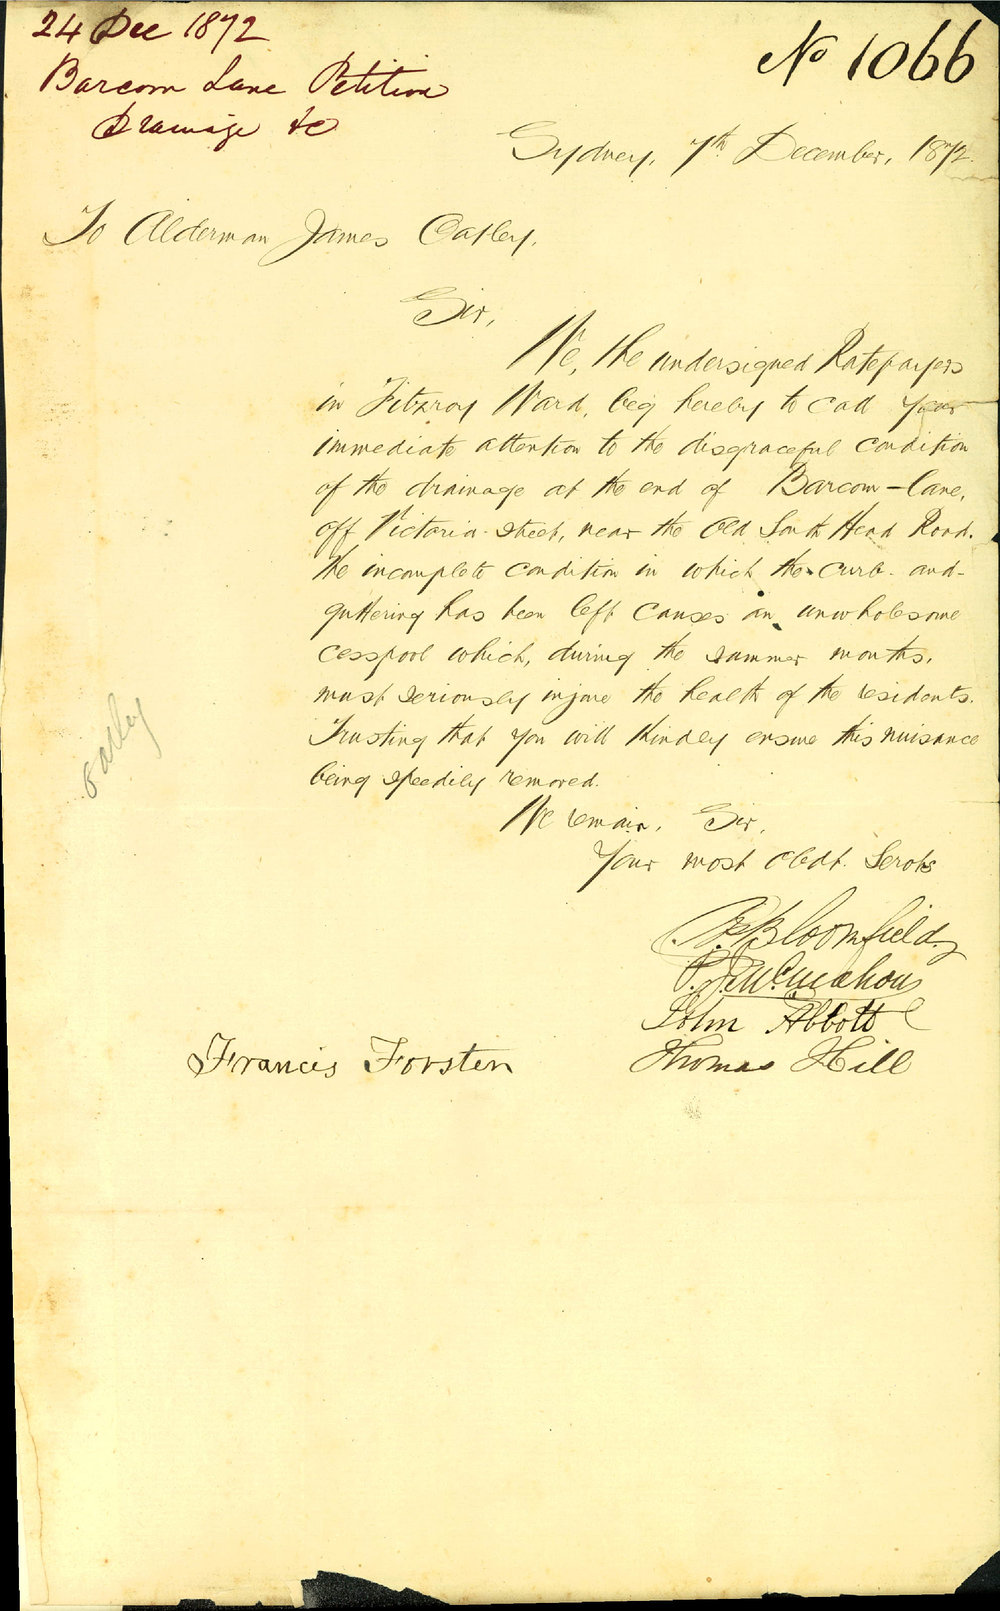 24 Dec 1872
Barcom Lane Petition
Drainage &c
No 1066
Sydney, 7th December, 1872.
To Alderman James Oatley,
Sir,
We, the undersigned Ratepayers
in Fitzroy Ward, beg hereby to call your
immediate attention to the disgraceful condition
of the drainage at the end of Barcom-lane,
off Victoria-street, near the Old South Head Road.
The incomplete condition in which the curb-and-
guttering has been left causes an unwholesome
cesspool which, during the summer months,
must seriously injure the health of the residents.
Trusting that you will kindly ensure this nuisance
being speedily removed.
We remain, Sir,
Your most obdt. Servts
Bloomfield
P. J. McMahon
John Abbott
Francis Forsten
Thomas Hill
Oatley